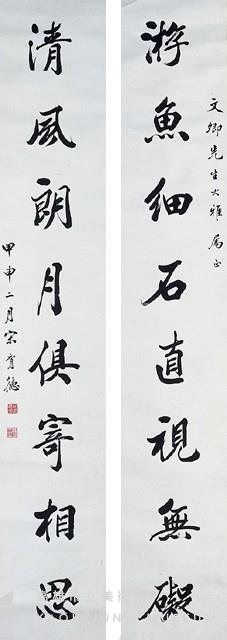 文卿先生大雅属正
游魚細石直視無礙
清風朗月俱寄相思
甲申二月宋育德